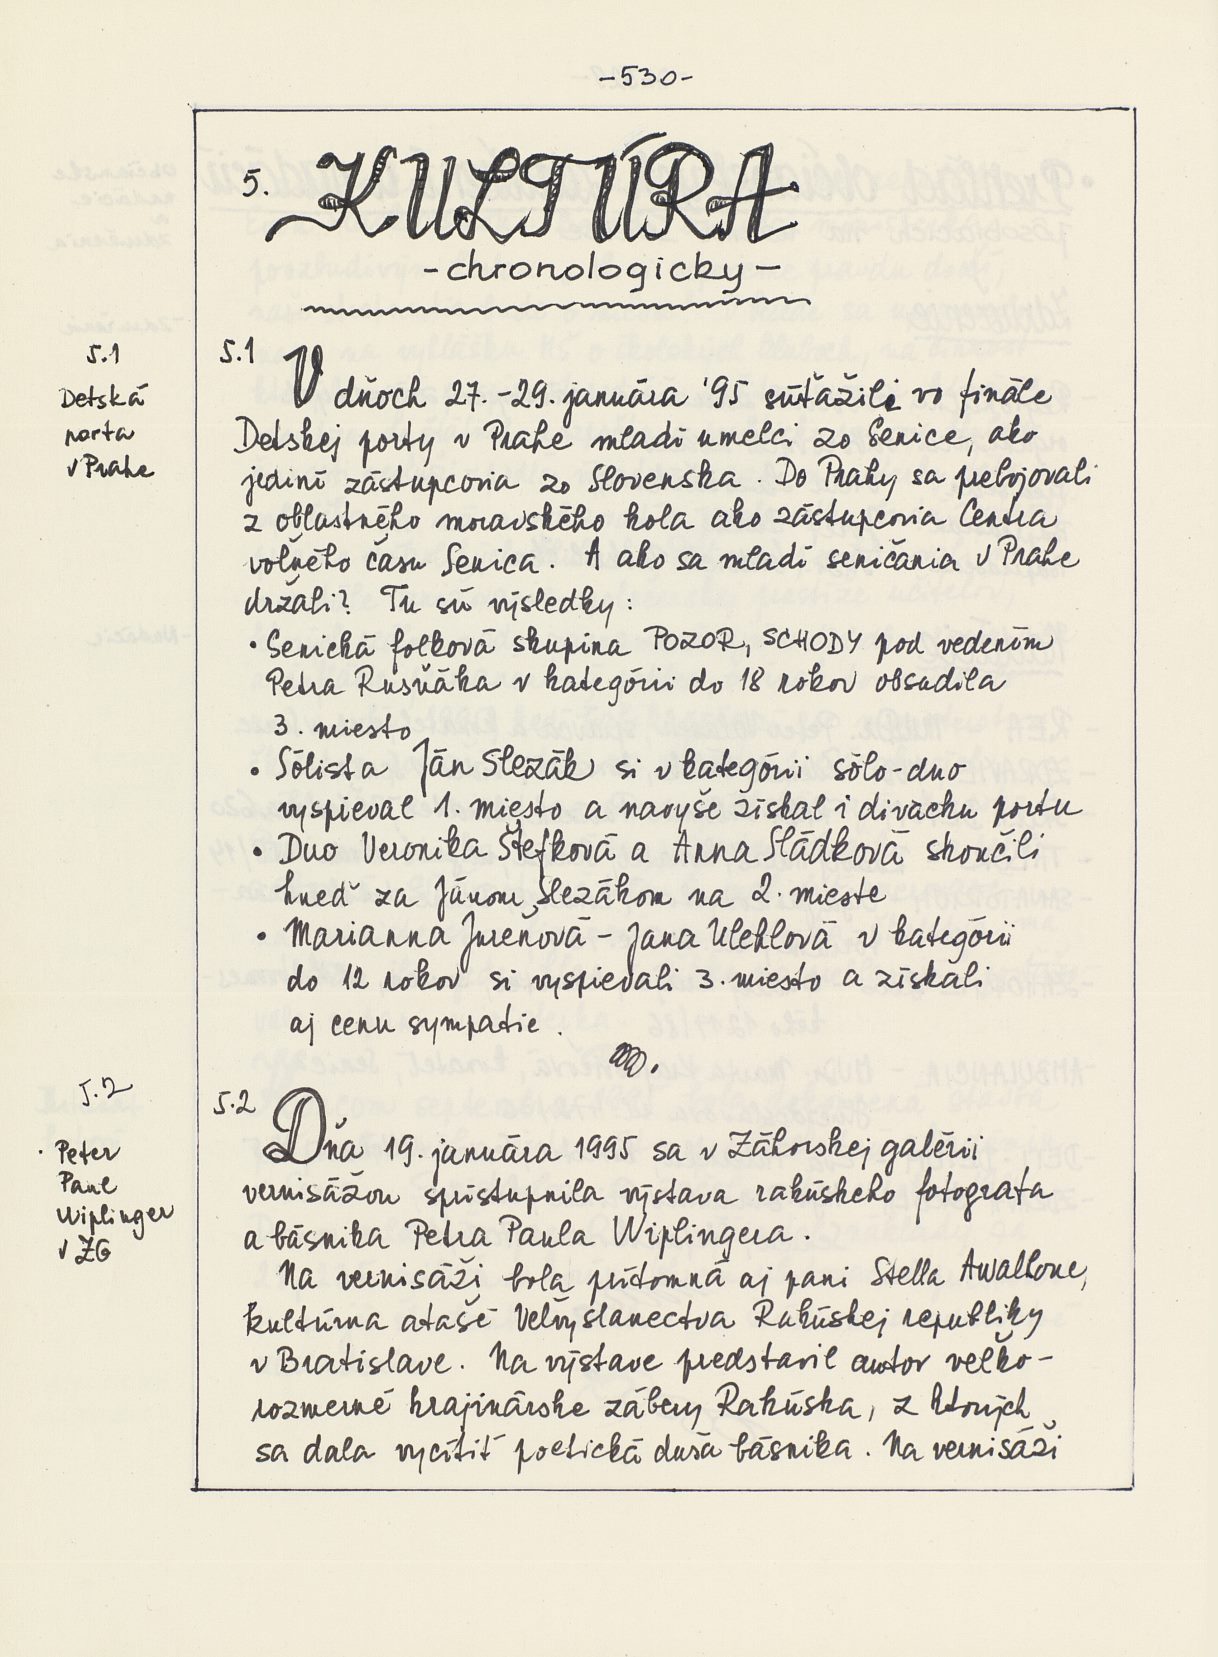 -530-
5. KULTÚRA
-chronologicky-
5.1
Detská
porta
v Prahe
5.1 V dňoch 27.-29. januára '95 súťažili vo finále
Detskej porty v Prahe mladí umelci zo Senice, ako
jediní zástupcovia zo Slovenska. Do Prahy sa prebojovali
z oblastného moravského kola ako zástupcovia Centra
voľného času Senica. A ako sa mladí seničania v Prahe
držali? Tu sú výsledky:
• Senická folková skupina POZOR, SCHODY pod vedením
Petra Rusňáka v kategórii do 18 rokov obsadila
3. miesto
• Sólista Ján Slezák si v kategórii sólo-duo
vyspieval 1. miesto a navyše získal i divácku portu
• Duo Veronika Štefková a Anna Sládková skončili
hneď za Jánom Slezákom na 2. mieste
• Marianna Jurenová - Jana Uhlová v kategórii
do 12 rokov si vyspievali 3. miesto a získali
aj cenu sympatie.
5.2
• Peter
Paul
Wiplinger
v ZG
5.2 Dňa 19. januára 1995 sa v Záhorskej galérii
vernisážou sprístupnila výstava rakúskeho fotografa
a básnika Petra Paula Wiplingera.
Na vernisáži bola prítomná aj pani Stella Awallone,
kultúrna atašé Veľvyslanectva Rakúskej republiky
v Bratislave. Na výstave predstavil autor veľko-
rozmerné krajinárske zábery Rakúska, z ktorých
sa dala vycítiť poetická duša básnika. Na vernisáži